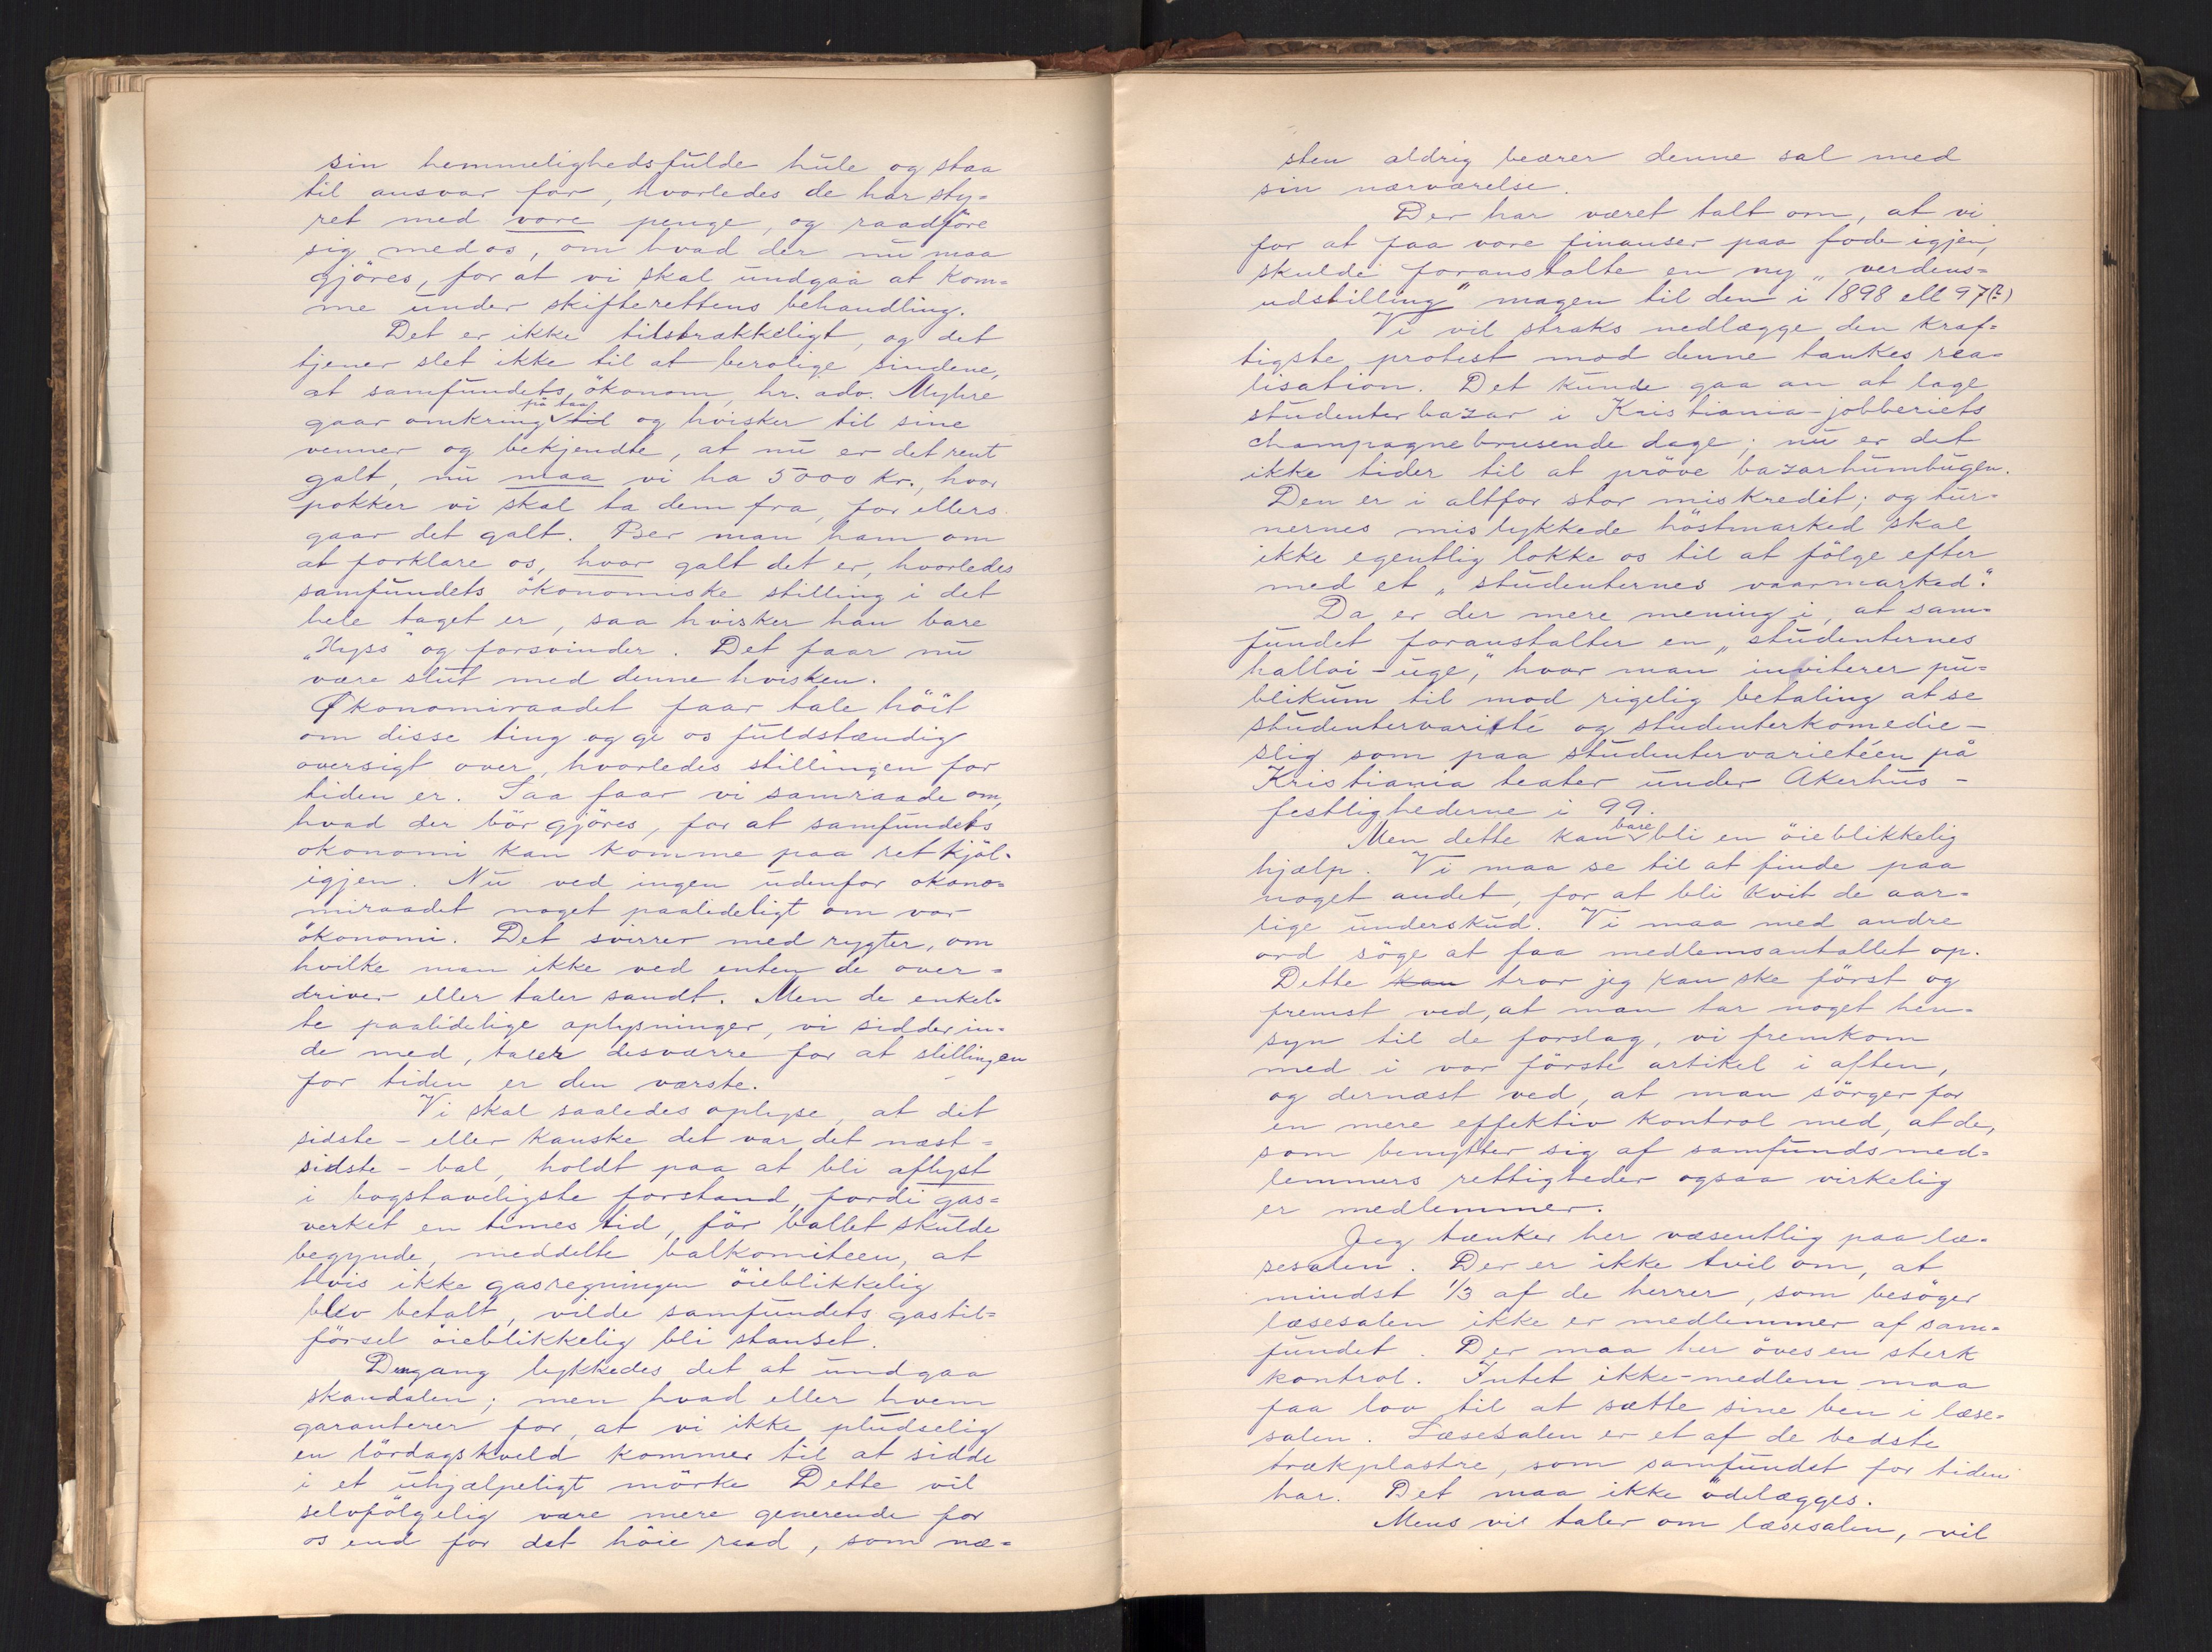 sin hemmelighedsfulde hule og staa
til ansvar for, hvorledes de har sty=
ret med vore penge, og raadføre
sig med os, om hvad der nu maa
gjöres, for at vi skal undgaa at kom=
me under skifterettens behandling.
Det er ikke tilstrækkeligt, og det
tjener slet ikke til at berolige sindene,
at samfundets ökonom, hr. adv. Myhre
gaar omkring på taa til og hvisker til sine
venner og bekjendte, at nu er det rent
galt, nu maa vi ha 5000 kr., hvor
pokker vi skal ta dem fra, for ellers
gaar det galt. Ber man ham om
at forklare os, hvor galt det er, hvorledes
samfundets ökonomiske stilling i det
hele taget er, saa hvisker han bare
„Hyss" og forsvinder. Det faar nu
være slut med denne hvisken.
Økonomiraadet faar tale höit
om disse ting og gi os fuldstændig
oversigt over, hvorledes stillingen for
tiden er. Saa faar vi samraade om,
hvad der bör gjöres, for at samfundets
okonomi kan komme paa ret kjöl
igjen. Nu ved ingen udenfor okono=
miraadet noget paalideligt om vor
ökonomi. Det svirrer med rygter, om
hvilke man ikke ved enten de over=
driver eller taler sandt. Men de enkel=
te paalidelige oplysninger, vi sidder in=
de med, taler desværre for at stillingen
for tiden er den værste.
Vi skal saaledes oplyse, at det
sidste - eller kanske det var det næst=
sidste - bal, holdt paa at bli aflyst
i bogstaveligste forstand, fordi gas=
verket en times tid, för ballet skulde
begynde, meddelte balkomiteen, at
hvis ikke gasregningen öieblikkelig
blev betalt, vilde samfundets gastil=
försel öieblikkelig bli stanset.
Dengang lykkedes det at undgaa
skandalen; men hvad eller hvem
garanterer for, at vi ikke pludselig
en lördagskveld kommer til at sidde
i et uhjælpeligt mörke Dette vil
selvfölgelig være mere generende for
os end for det höie raad, som næ=
sten aldrig beærer denne sal med
sin nærværelse.
Der har været talt om, at vi
for at faa vore finanser paa fode igjen,
skulde foranstalte en ny „verdens=
udstilling" magen til den i 1898 ell 97(?)
Vi vil straks nedlægge den kraf=
tigste protest mod denne tankes rea=
lisation. Det kunde gaa an at lage
studenterbazar i Kristiania-jobberiets
champagnebrusende dage; nu er det
ikke tider til at pröve bazarhumbugen.
Den er i altfor stor miskredit; og tur=
nernes mislykkede höstmarked skal
ikke egentlig lokke os til at fölge efter
med et „studenternes vaarmarked."
Da er der mere mening i, at sam=
fundet foranstalter en „studenternes
halloi-uge," hvor man inviterer pu=
blikum til mod rigelig betaling at se
studentervarité og studenterkomedie -
slig som paa studentervarietéen på
Kristiania teater under Akerhus -
festlighederne i 99.
Men dette kan bare bli en öieblikkelig
hjælp. Vi maa se til at finde paa
noget andet, for at bli kvit de aar=
lige underskud. Vi maa med andre
ord söge at faa medlemsantallet op.
Dette kan tror jeg kan ske först og
fremst ved, at man tar noget hen=
syn til de forslag, vi fremkom
med i vor förste artikel i aften,
og dernæst ved, at man sörger for
en mere effektiv kontrol med, at de,
som benytter sig af samfundsmed=
lemmers rettigheder ogsaa virkelig
er medlemmer.
Jeg tænker her væsentlig paa læ=
sesalen. Der er ikke tvil om, at
mindst 1/3 af de herrer, som besöger
læsesalen ikke er medlemmer af sam=
fundet. Der maa her öves en sterk
kontrol. Intet ikke-medlem maa
faa lov til at sætte sine ben i læse=
salen. Læsesalen er et af de bedste
trækplastre, som samfundet for tiden
har. Det maa ikke ödelægges.
Mens vi taler om læsesalen, vil